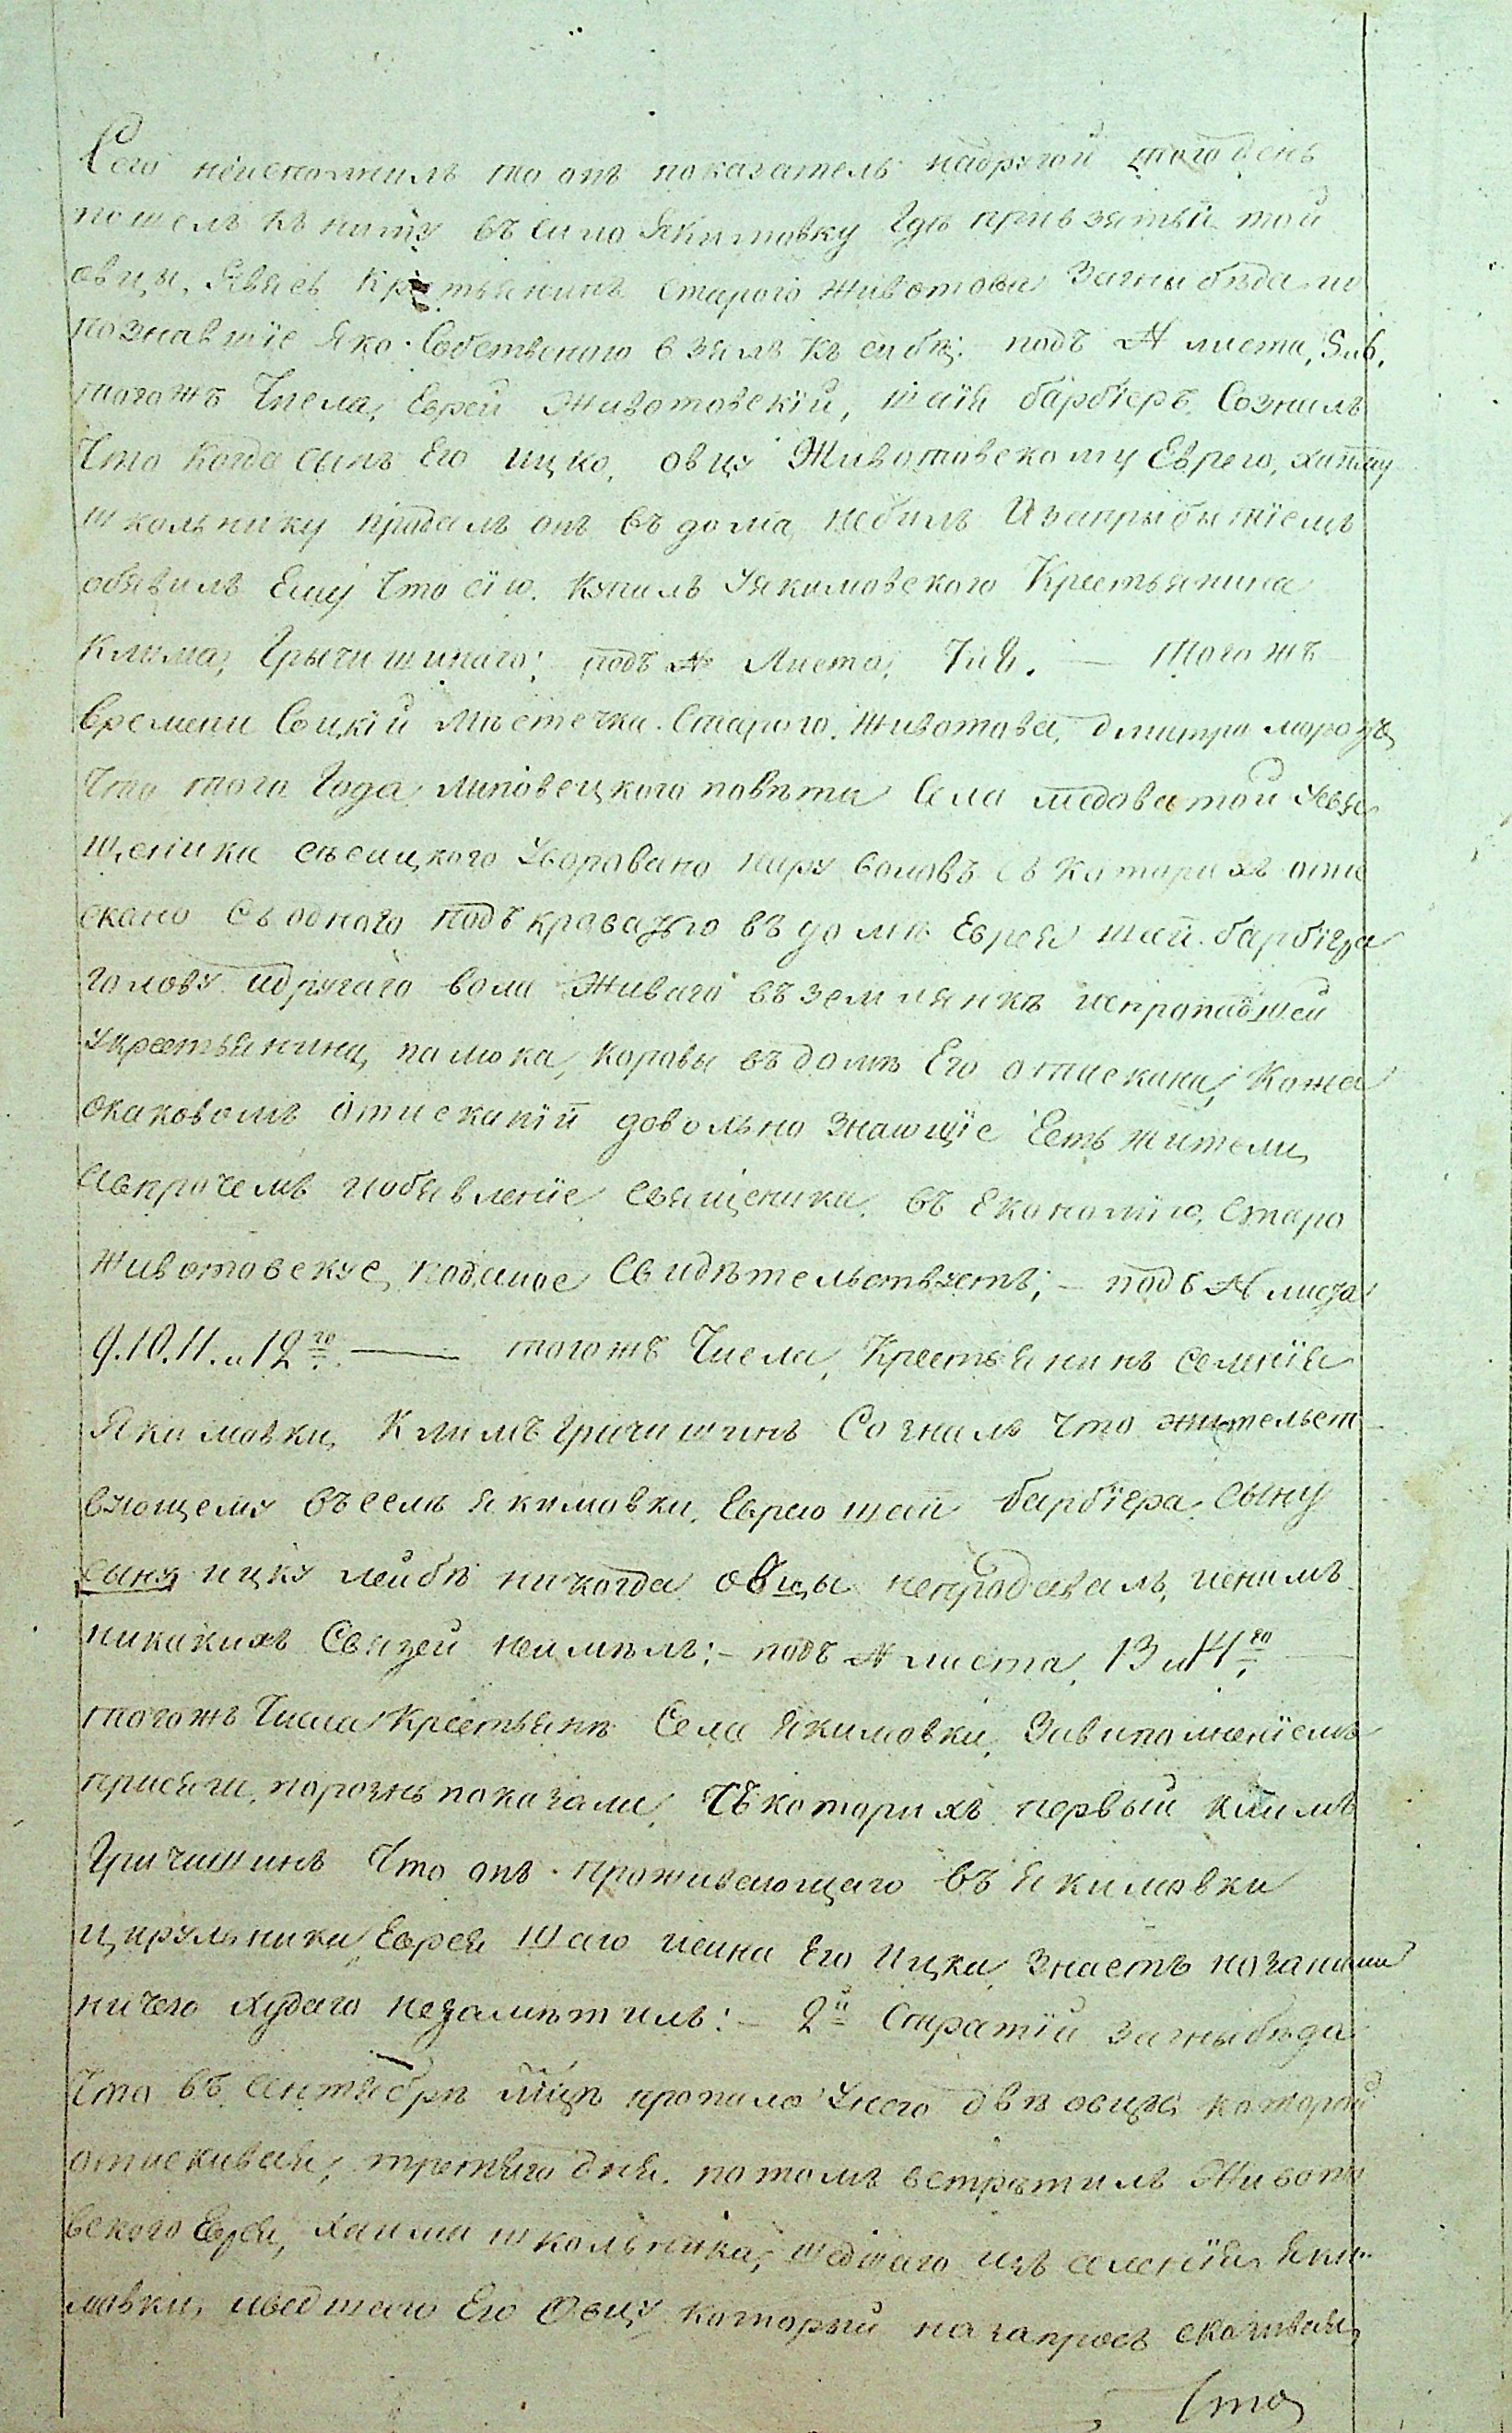 Сего неисполнилъ то онъ показатель надругой того день
пошелъ къ нему въ село Якимовку где привзятьи той
овцы, явясь крестьянинъ старого Животова Загныбѣда ию
познавшіе яко Собственою взялъ къ сибѣ: подъ № листа, 5 и 6,
тогожъ Числа, Еврей Животовскій, шаія барбіеръ Сознилъ
Что когда сынъ Его ицко, овцу Животовскому Еврею, хаиму
школьнику продалъ онъ въ дома небилъ Изаприбытіемъ
обявилъ Ему Что сію купилъ Уякимовского Крестьянина
Клима, Грычишинаго; подъ № Листа, 7 и 8. — Тогожъ
времени Соцкій Местечка Старого Животова, дмитро морозъ
Что того Года, липовецкого повѣта Села медоватой Усвя
щеника сѣсицкого Уворовано пару воловъ съ Которихъ оти
скано съ одного подъкраватью въ доме Еврея шаи барбіера
голову идругаго вола Живаго въ землянкѣ испропавшей
Укрестьянина, палюка, коровы въ доме Его отискана, Кожа
окаковомъ отисканіи довольно знающіе Есть жители
Авпрочемъ иобявленіе священика, въ Економію, Старо
животовскуе, поданое Свидѣтельствуетъ; — подъ № листа
9. 10. 11. и 12го. — тогожъ Числа, Крестьянинъ селенія
Якимовки, Климъ Гричишинъ Созналъ Что жительст
вующему въ селѣ якимовки, Еврею шаи барбіера сыну
сыну ицку лейбѣ никогда овцы непродавалъ, иснимъ
никакихъ Связей неимѣлъ: — подъ № листа, 13 и 14го —
тогожъ Числа Крестьянѣ Села якимовки, Завиполненіемъ
присяги, порознь показали, Съкоторихъ первый климъ
Гричишинъ Что онъ проживающаго въ якимовки
цирульника Еврея Шаю исина Его Ицка знаетъ нозаними
ничего худаго незамѣтилъ: — 2й Старатій Загныбѣда
Что въ сентябрѣ мцѣ пропало Унего двѣ овцѣ которой
отискивая, третяго дня, потомъ встрѣтилъ Живото
вского Еврея, хаима школьника, шедшаго изъ селенія Яки-
мовки, иведшаго Его Овцу который назапросъ сказивая,
Что